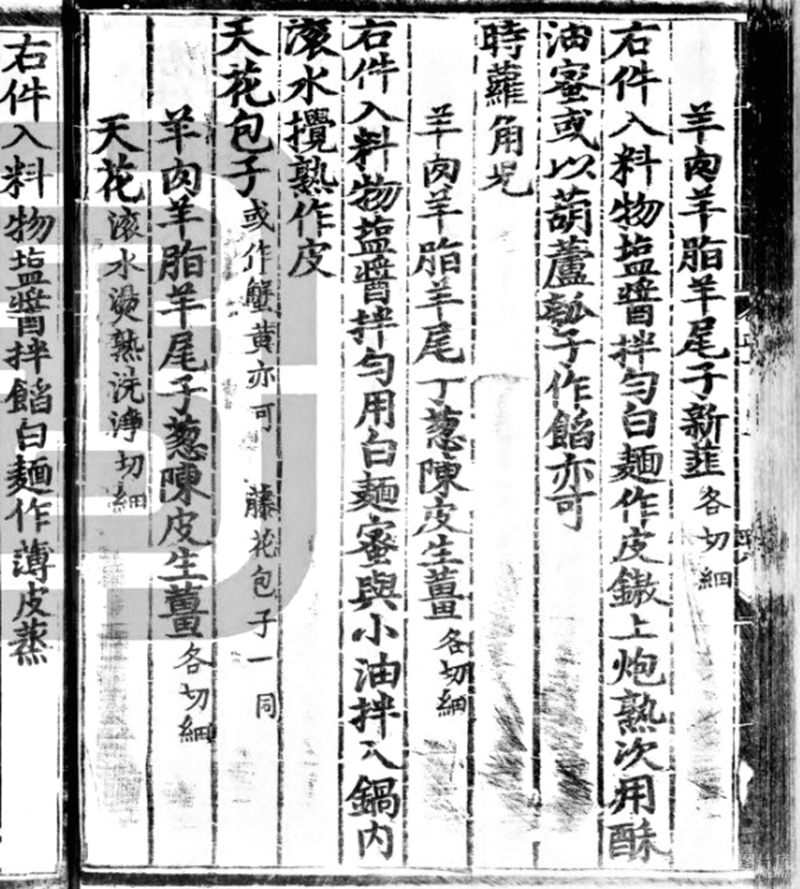 羊肉羊脂羊尾子新韮各切細
右件入料物塩醬拌勻白麵作皮鏊上炮熟次用酥
油蜜或以葫蘆瓠子作餡亦可
時蘿角兒
羊肉羊脂羊尾丁葱陳皮生薑各切細
右件入料物塩醬拌勻用白麵蜜與小油拌入鍋内
滾水攪熟作皮
天花包子或作蟹黄亦可 藤花包子一同
羊肉羊脂羊尾子葱陳皮生薑各切細
天花滾水燙熟洗淨切細
右件入料物塩醬拌餡白麵作薄皮蒸